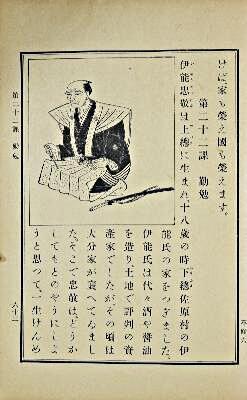 けば、家も榮え國も榮えます。
第二十二課　勤勉
伊能忠敬は上總に生まれ十八
歳の時下總佐原村の伊
能氏の家をつぎました。
伊能氏は代々酒や醤油
を造り土地で評判の資
產家でしたが、その頃は
大分家が衰へてゐまし
た。そこで忠敬はどうか
してもとのやうにしよ
うと思つて、一生けんめ
第二十二課　勤勉
六十一